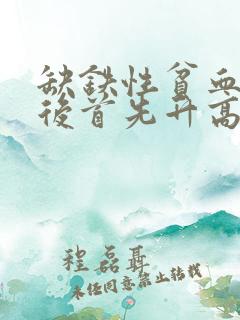 缺鉄性貧血
後首先升高
程磊聶
未经同意禁止转载